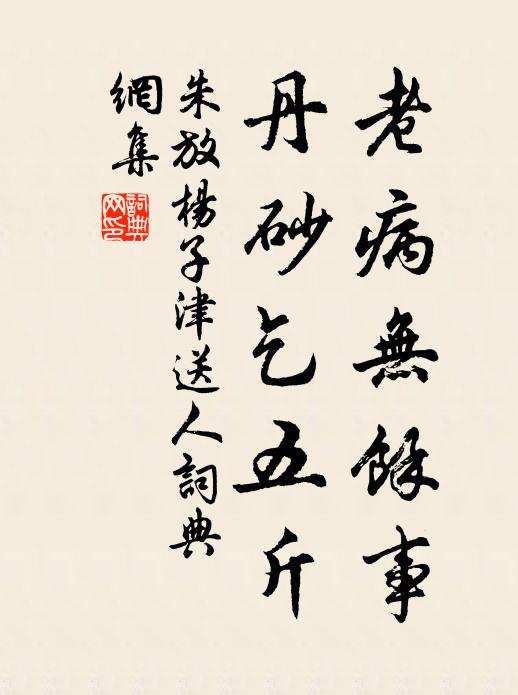 老病無餘事
丹砂乞五斤
朱放楊子津送人詞典
網集
詞典
网印